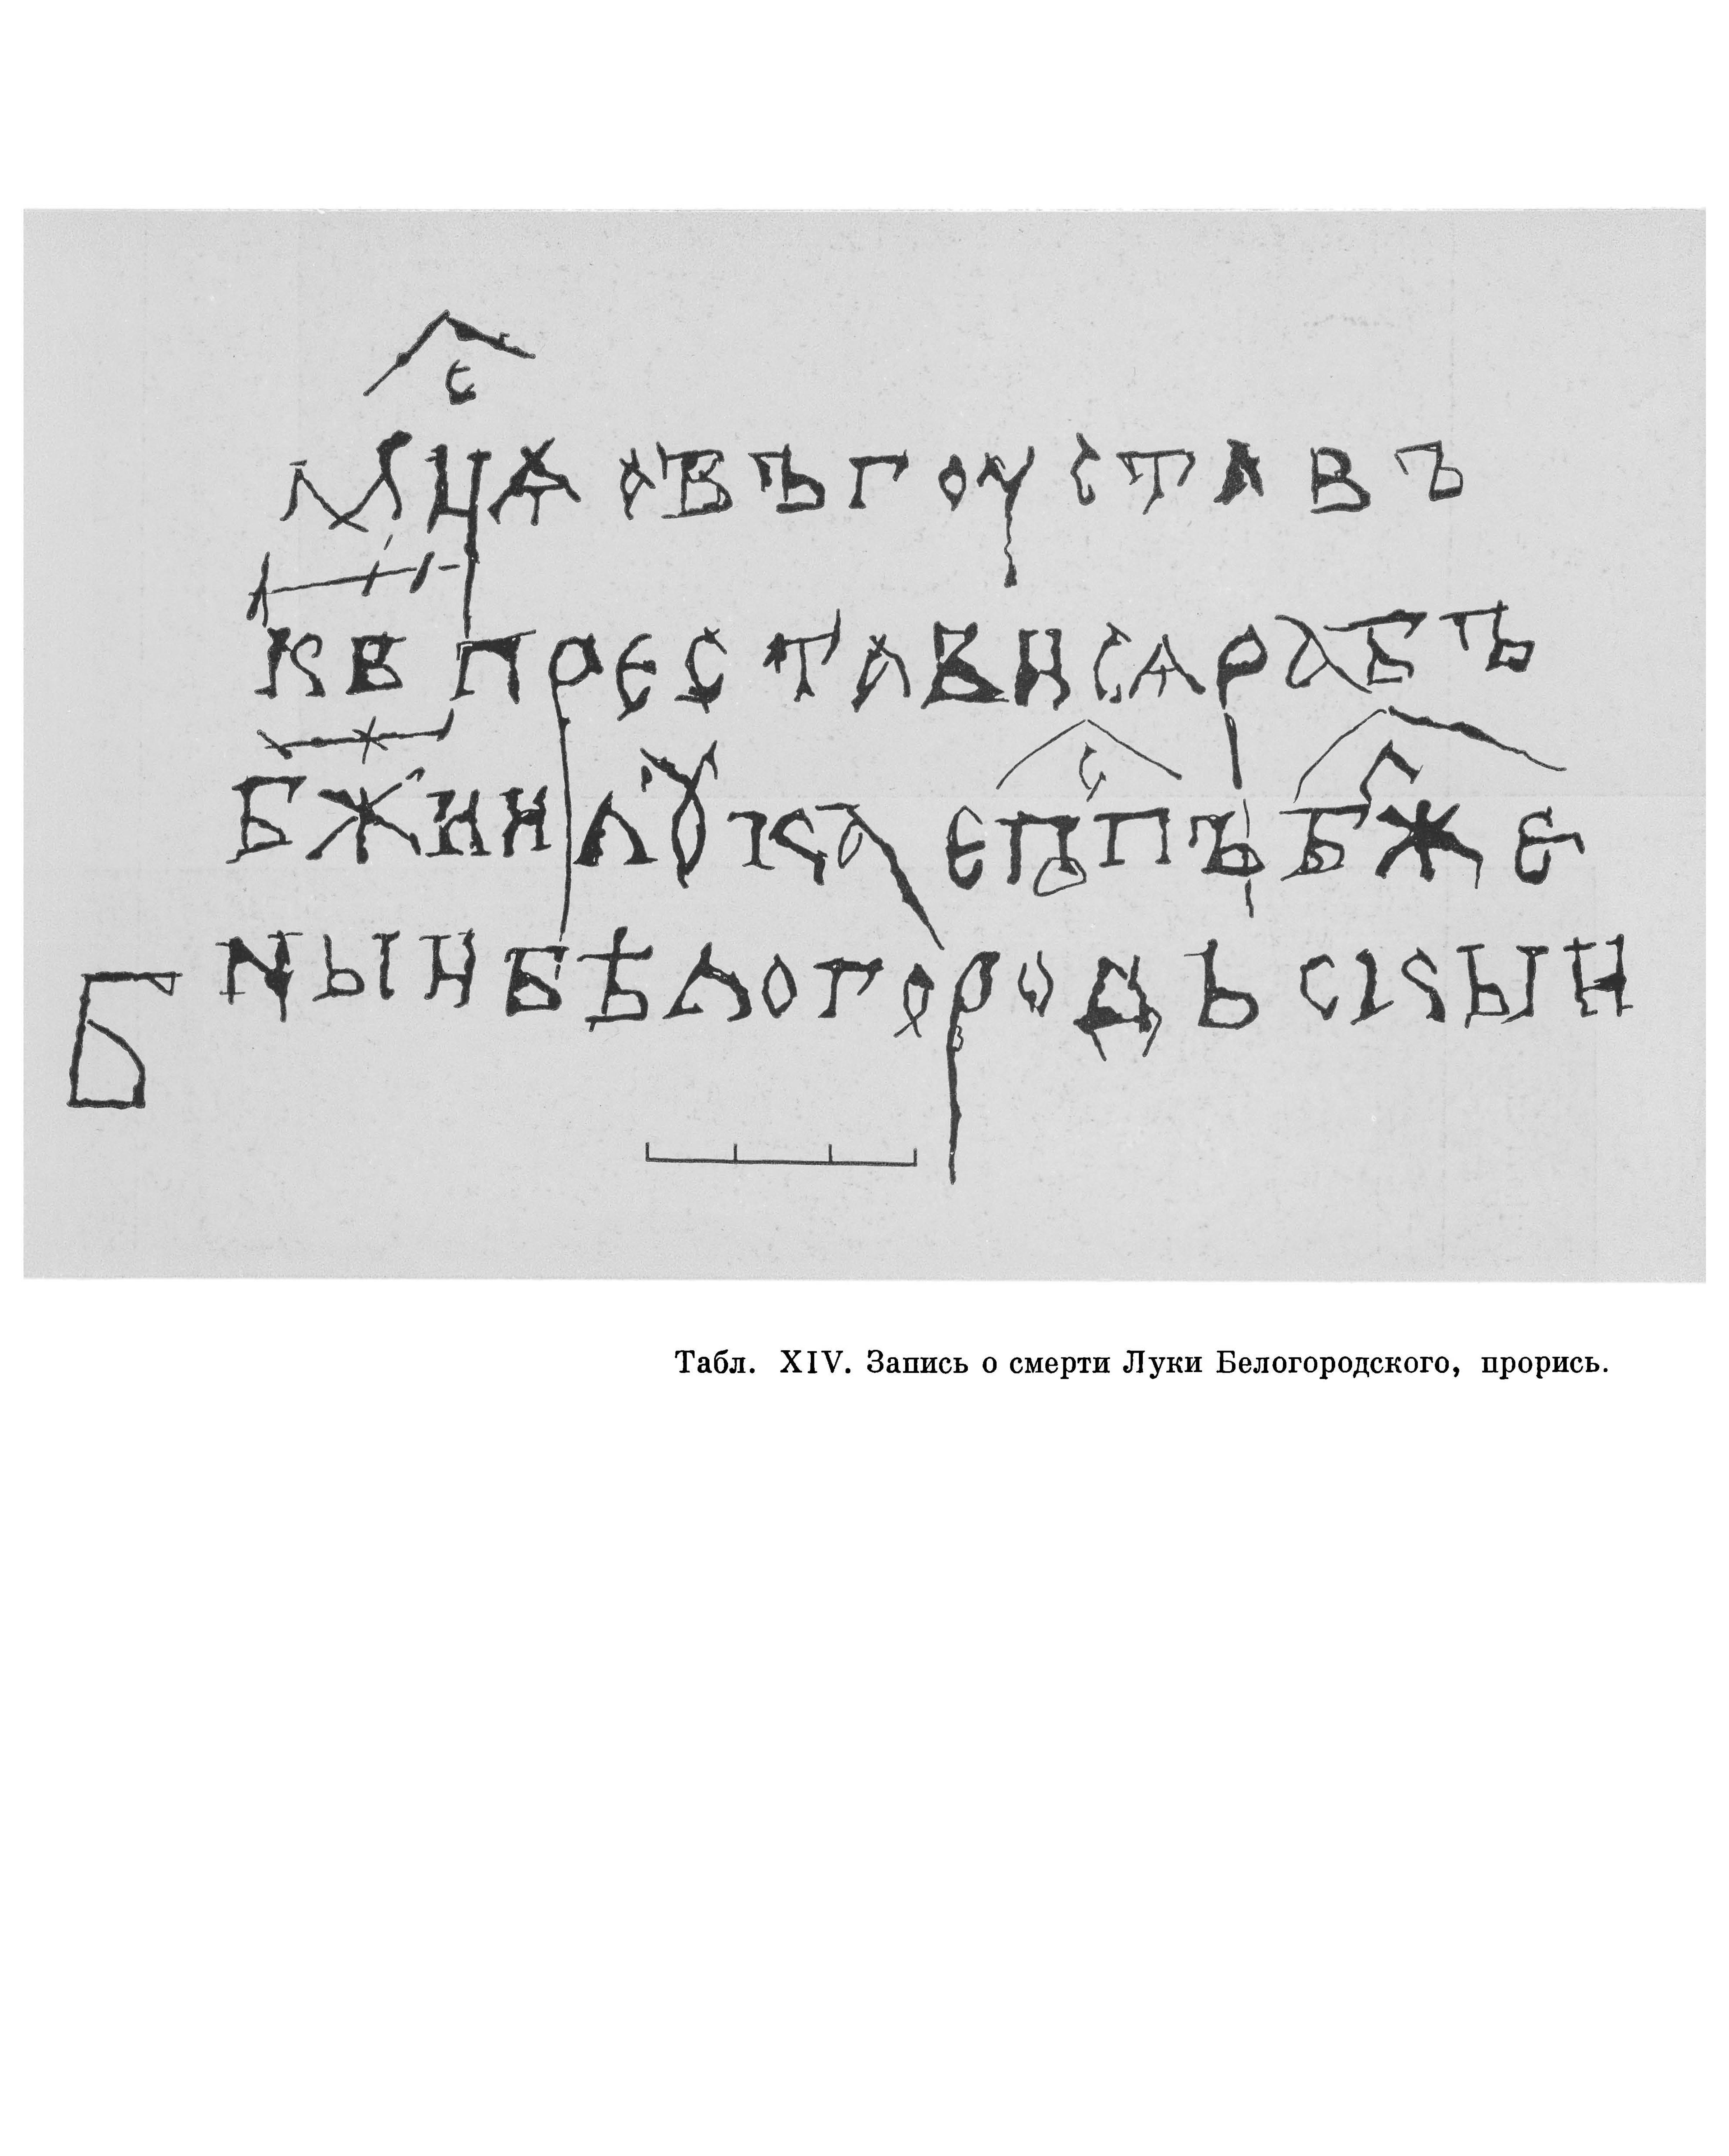 мⷭ҇цѧ авъгоуставъ
кв престависѧ рабъ
бжии лꙋка епⷭ҇пъ блⷤже
ныи бѣлогородьскыи
Б
Табл. XIV. Запись о смерти Луки Белогородского, прорись.